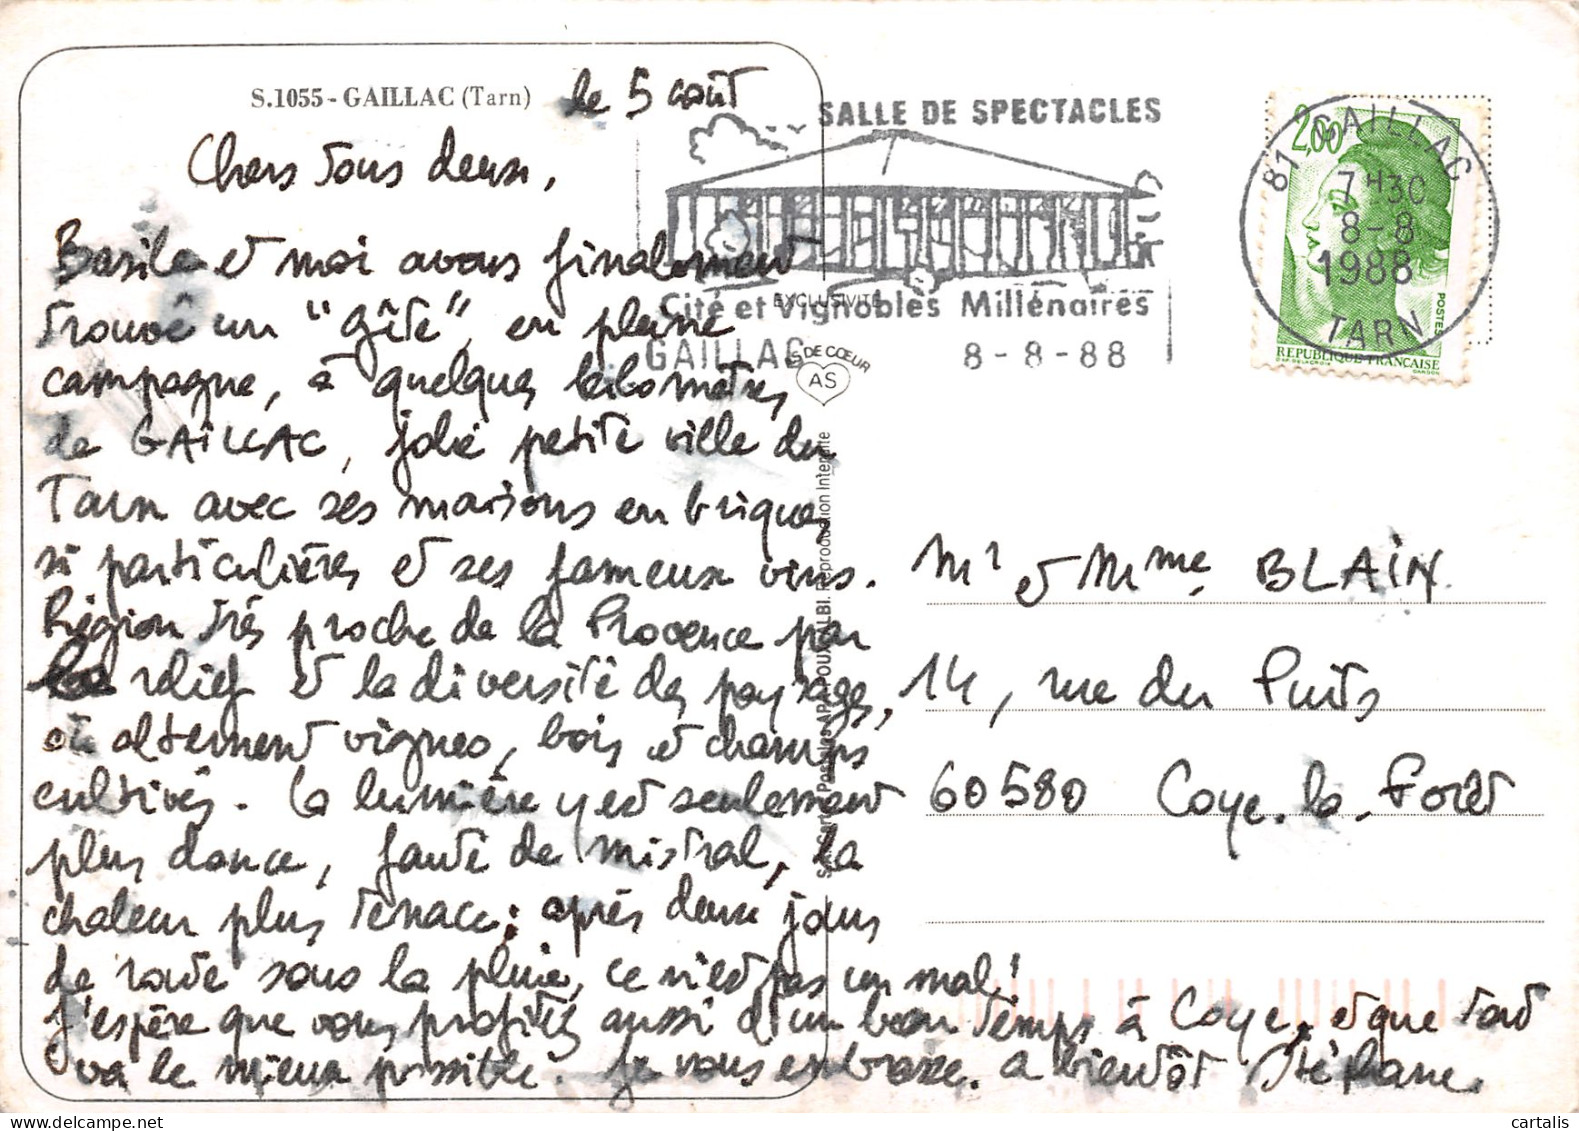 S.1055 - GAILLAC (Tarn)
le 5 août
Chers tous deux,
Basile et moi avons finalement
trouvé un "gîte", en pleine
campagne, à quelques kilomètres
de GAILLAC, jolie petite ville du
Tarn avec ses maisons en briques
si particulières et ses fameux vins.
Région très proche de la Provence par
relief et la diversité des paysages,
où alternent vignes, bois et champs
cultivés. La lumière y est seulement
plus douce, faute de mistral, la
chaleur plus tenace ; après deux jours
de route sous la pluie, ce n'est pas un mal !
J'espère que vous profitez aussi d'un bon temps à Coye, et que tout
va le mieux possible. Je vous embrasse. A bientôt Stéphane.
SALLE DE SPECTACLES
Cité et Vignobles Millénaires
GAILLAC 8-8-88
EXCLUSIVITÉ
AS DE CŒUR
AS
Cartes Postales APA-POUX ALBI. Reproduction Interdite
2,00
POSTES
REPUBLIQUE FRANÇAISE
81 GAILLAC
7H30
8-8
1988
TARN
Mr et Mme BLAIN
14, rue du Puits
60580 Coye-la-Forêt
cartalis